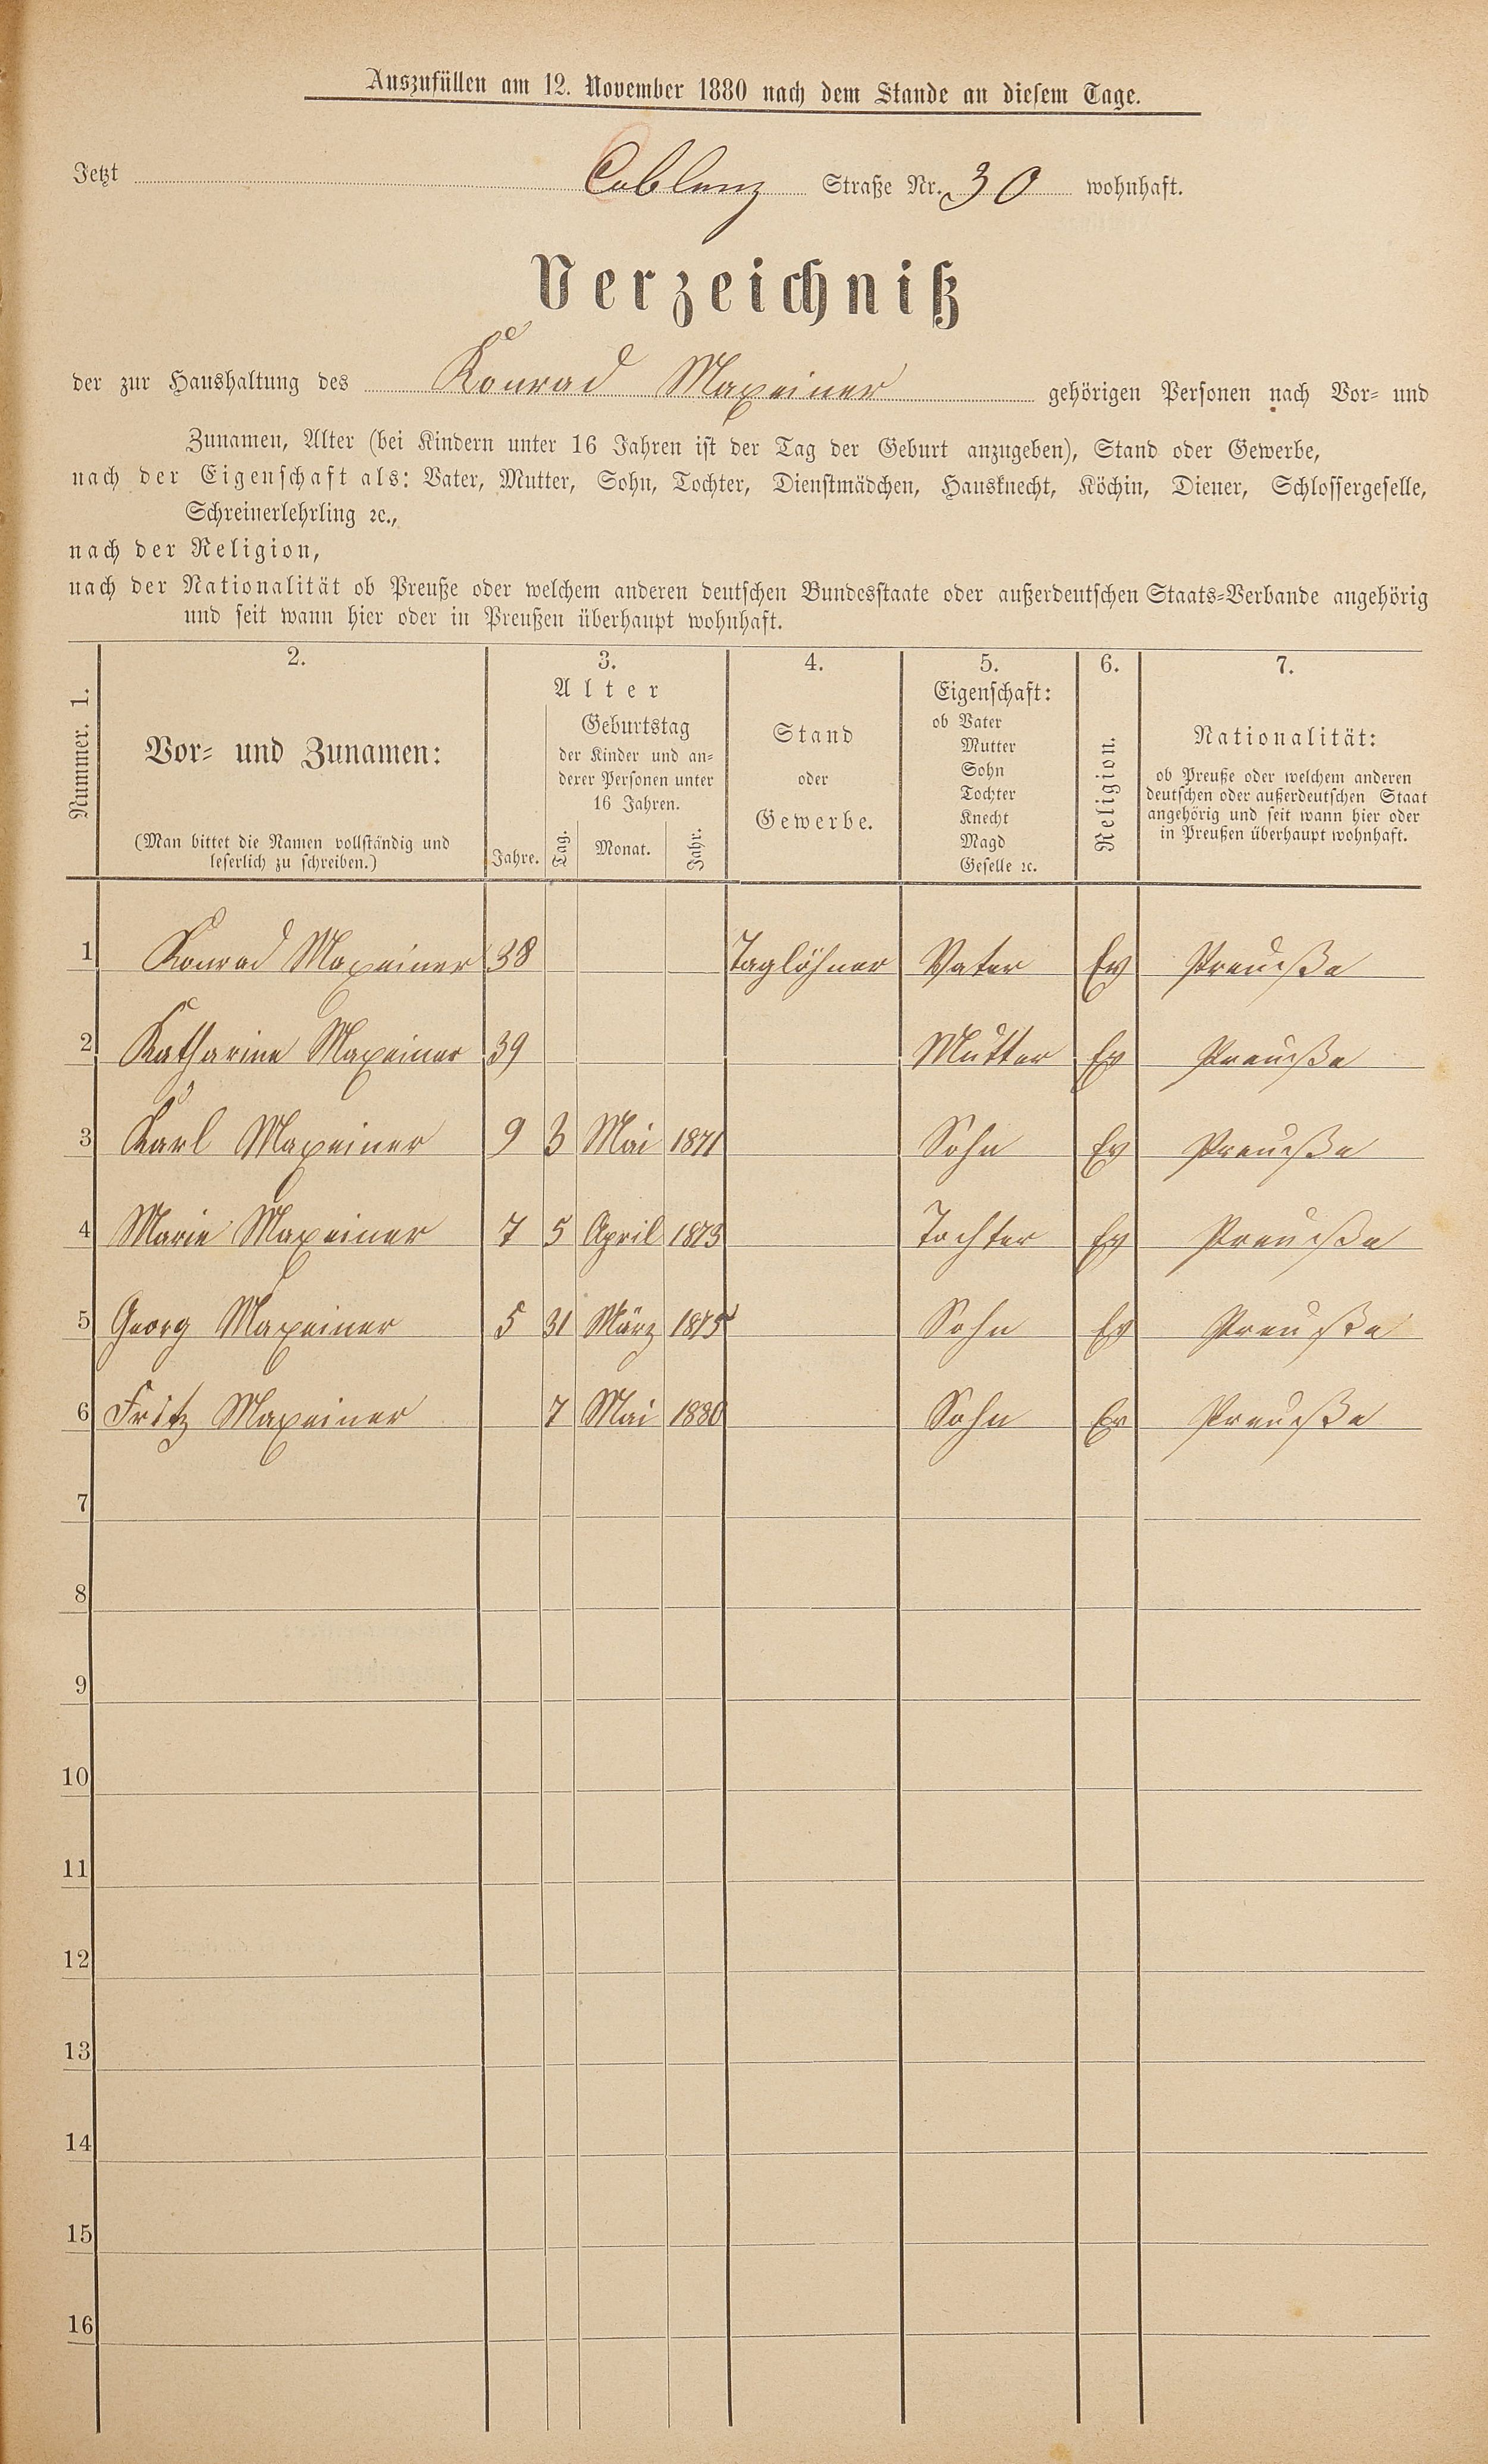 Auszufüllen am 12. November 1880 nach dem Stande an diesem Tage.
Jetzt Coblenz Straße Nr. 30 wohnhaft.
Verzeichniß
der zur Haushaltung des Konrad Maxeiner gehörigen Personen nach Vor- und
Zunamen, Alter (bei Kindern unter 16 Jahren ist der Tag der Geburt anzugeben), Stand oder Gewerbe,
nach der Eigenschaft als: Vater, Mutter, Sohn, Tochter, Dienstmädchen, Hausknecht, Köchin, Diener, Schlossergeselle,
Schreinerlehrling ꝛc.,
nach der Religion,
nach der Nationalität ob Preuße oder welchem anderen deutschen Bundesstaate oder außerdeutschen Staats-Verbande angehörig
und seit wann hier oder in Preußen überhaupt wohnhaft.
Nummer. 1.
2.
Vor- und Zunamen:
(Man bittet die Namen vollständig und
leserlich zu schreiben.)
3.
Alter
Jahre.
Geburtstag
der Kinder und an-
derer Personen unter
16 Jahren.
Tag. Monat. Jahr.
4.
Stand
oder
Gewerbe.
5.
Eigenschaft:
ob Vater
Mutter
Sohn
Tochter
Knecht
Magd
Geselle ꝛc.
6.
Religion.
7.
Nationalität:
ob Preuße oder welchem anderen
deutschen oder außerdeutschen Staat
angehörig und seit wann hier oder
in Preußen überhaupt wohnhaft.
1 Konrad Maxeiner 38 Taglöhner Vater Ev Preuße
2 Katharine Maxeiner 39 Mutter Ev Preuße
3 Karl Maxeiner 9 3 Mai 1871 Sohn Ev Preuße
4 Marie Maxeiner 7 5 April 1873 Tochter Ev Preuße
5 Georg Maxeiner 5 31 März 1875 Sohn Ev Preuße
6 Fritz Maxeiner 7 Mai 1880 Sohn Ev Preuße
7
8
9
10
11
12
13
14
15
16